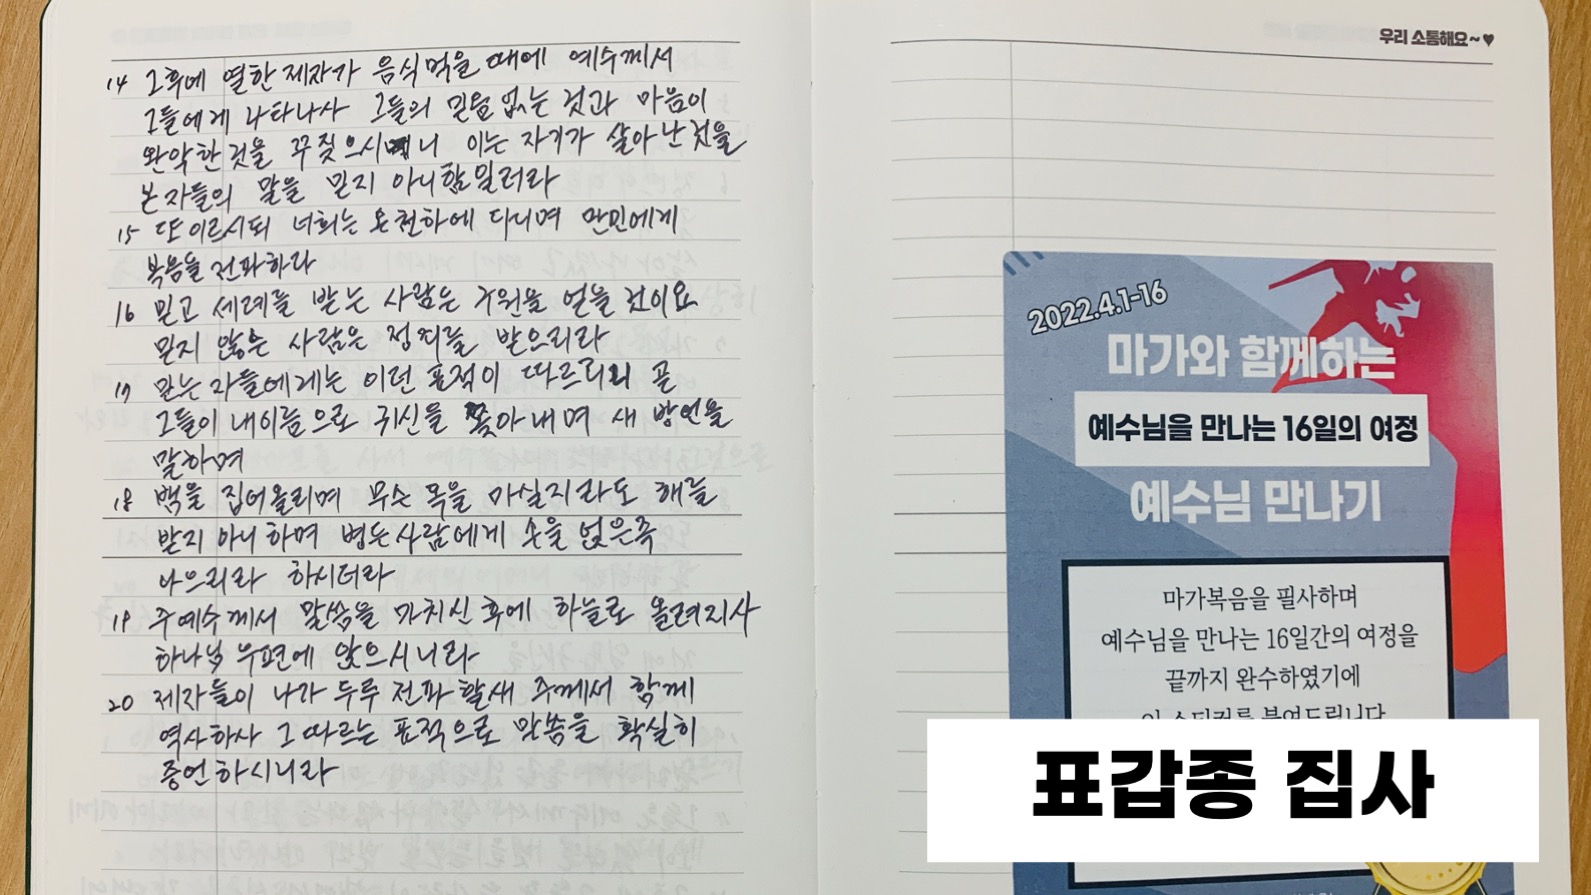 14 그후에 열한 제자가 음식먹을 때에 예수께서
그들에게 나타나사 그들의 믿음 없는 것과 마음이
완악한것을 꾸짖으시니 이는 자기가 살아난것을
본자들의 말을 믿지 아니함일러라
15 또 이르시되 너희는 온천하에 다니며 만민에게
복음을 전파하라
16 믿고 세례를 받는 사람은 구원을 얻을 것이요
믿지 않는 사람은 정죄를 받으리라
17 믿는 자들에게는 이런 표적이 따르리니 곧
그들이 내이름으로 귀신을 쫓아내며 새 방언을
말하며
18 뱀을 집어올리며 무슨 독을 마실지라도 해를
받지 아니하며 병든사람에게 손을 얹은즉
나으리라 하시더라
19 주예수께서 말씀을 마치신 후에 하늘로 올려지사
하나님 우편에 앉으시니라
20 제자들이 나가 두루 전파할새 주께서 함께
역사하사 그 따르는 표적으로 말씀을 확실히
증언하시니라
우리 소통해요~♥
2022.4.1-16
마가와 함께하는
예수님을 만나는 16일의 여정
예수님 만나기
마가복음을 필사하며
예수님을 만나는 16일간의 여정을
끝까지 완수하였기에
이 스티커를 붙여드립니다
표갑종 집사